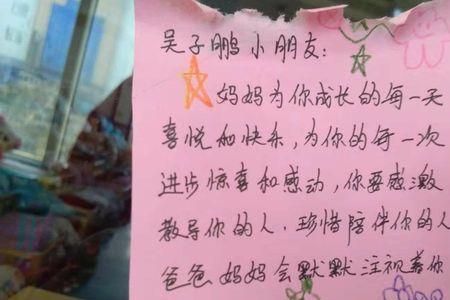 吴子鹏小朋友：
妈妈为你成长的每一天
喜悦和快乐，为你的每一次
进步惊喜和感动，你要感激
教导你的人，珍惜陪伴你的人
爸爸妈妈会默默注视着你